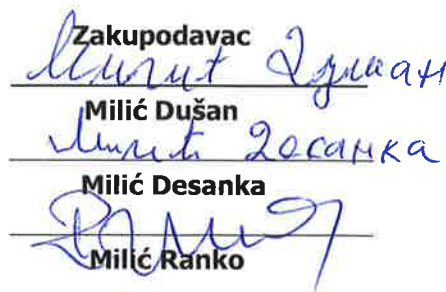 Zakupodavac
Милић Душан
Milić Dušan
Милић Десанка
Milić Desanka
Milić Ranko